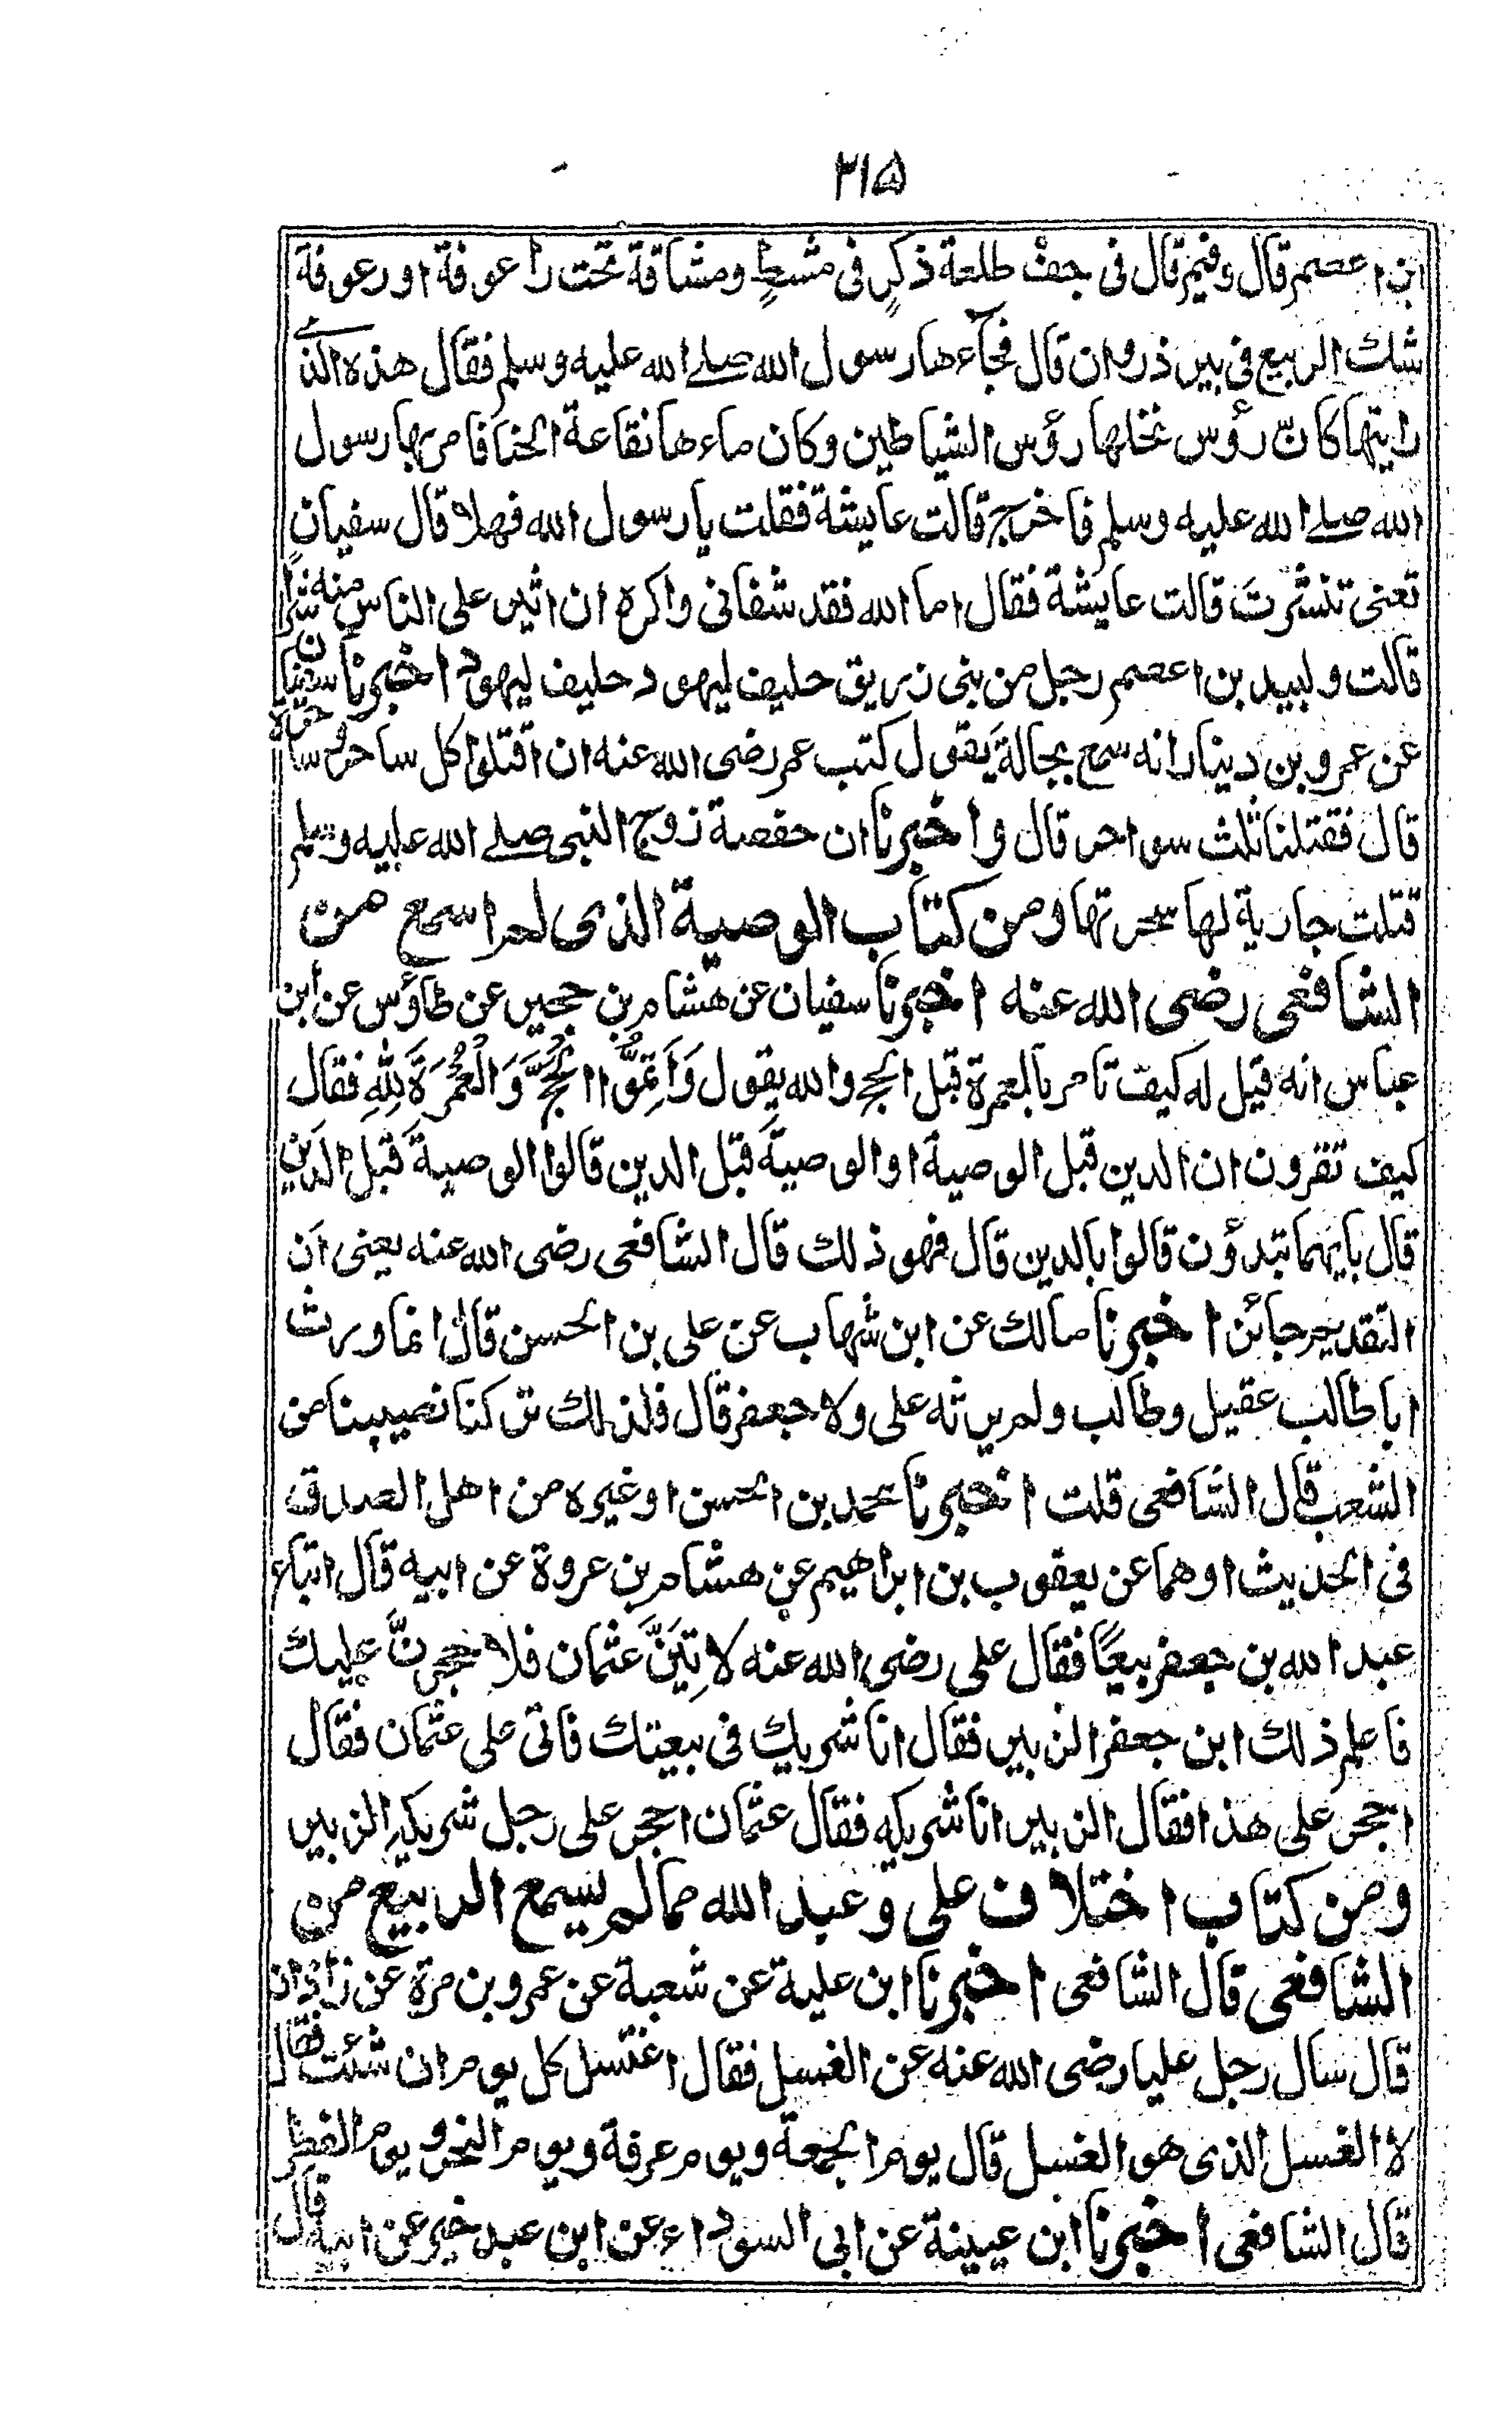 ٢١٥
ابن اعصم قال وفيم قال فى جف طلعة ذكرٍ فى مشطٍ ومشاقة تحت راعوفة او رعوفة
شك الربيع فى بير ذروان قال فجآءها رسول الله صلے الله عليه وسلم فقال هذه الذے
رايتها كانّ رؤس نخلها رؤس الشياطين وكان ماءها نقاعة الحنا فامر بها رسول
الله صلے الله عليه وسلم فاخرج قالت عايشة فقلت يا رسول الله فهلا قال سفيان
تعنى تنشرت قالت عايشة فقال اما الله فقد شفانى واكره ان اثير على الناس منه شرًا
قالت ولبيد بن اعصم رجل من بنى زريق حليف ليهود حليف ليهود اخبرنا سفيان
عن عمرو بن دينار انه سمع بجالة يقول كتب عمر رضى الله عنه ان اقتلوا كل ساحر وساحرة
قال فقتلنا ثلث سواحر قال واخبرنا ان حفصة زوج النبى صلے الله عليه وسلم
قتلت جارية لها سحرتها ومن كتاب الوصية الذى لم اسمع من
الشافعى رضى الله عنه اخبرنا سفيان عن هشام بن حجير عن طاؤس عن ابن
عباس انه قيل له كيف تامر بالعمرة قبل الحج والله يقول وَاَتِمُّوا الْحَجَّ وَالْعُمْرَةَ لِلّٰهِ فقال
كيف تقرون ان الدين قبل الوصية او الوصية قبل الدين قالوا الوصية قبل الدين
قال بايهما تبدؤن قالوا بالدين قال فهو ذلك قال الشافعى رضى الله عنه يعنى ان
التقديم جائز اخبرنا مالك عن ابن شهاب عن على بن الحسن قال انما ورث
ابا طالب عقيل وطالب ولم يرثه على ولا جعفر قال فلذلك تركنا نصيبنا من
الشعب قال الشافعى قلت اخبرنا محمد بن الحسن او غيره من اهل الصدق
فى الحديث او هما عن يعقوب بن ابراهيم عن هشام بن عروة عن ابيه قال ابتاع
عبد الله بن جعفر بيعًا فقال على رضى الله عنه لاتِيَنَّ عثمان فلاحجرنَّ عليك
فاعلم ذلك ابن جعفر الزبير فقال انا شريك فى بيعتك فاتى على عثمان فقال
احجر على هذا فقال الزبير انا شريكه فقال عثمان احجر على رجل شريكه الزبير
ومن كتاب اختلاف على وعبد الله مما لم يسمع الربيع من
الشافعى قال الشافعى اخبرنا ابن علية عن شعبة عن عمرو بن مرة عن زاذان
قال سال رجل عليا رضى الله عنه عن الغسل فقال اغتسل كل يوم ان شئت فقال
لا الغسل الذى هو الغسل قال يوم الجمعة ويوم عرفة ويوم النحر ويوم الفطر
قال الشافعى اخبرنا ابن عيينة عن ابى السوداء عن ابن عبد خير عن ابيه قال